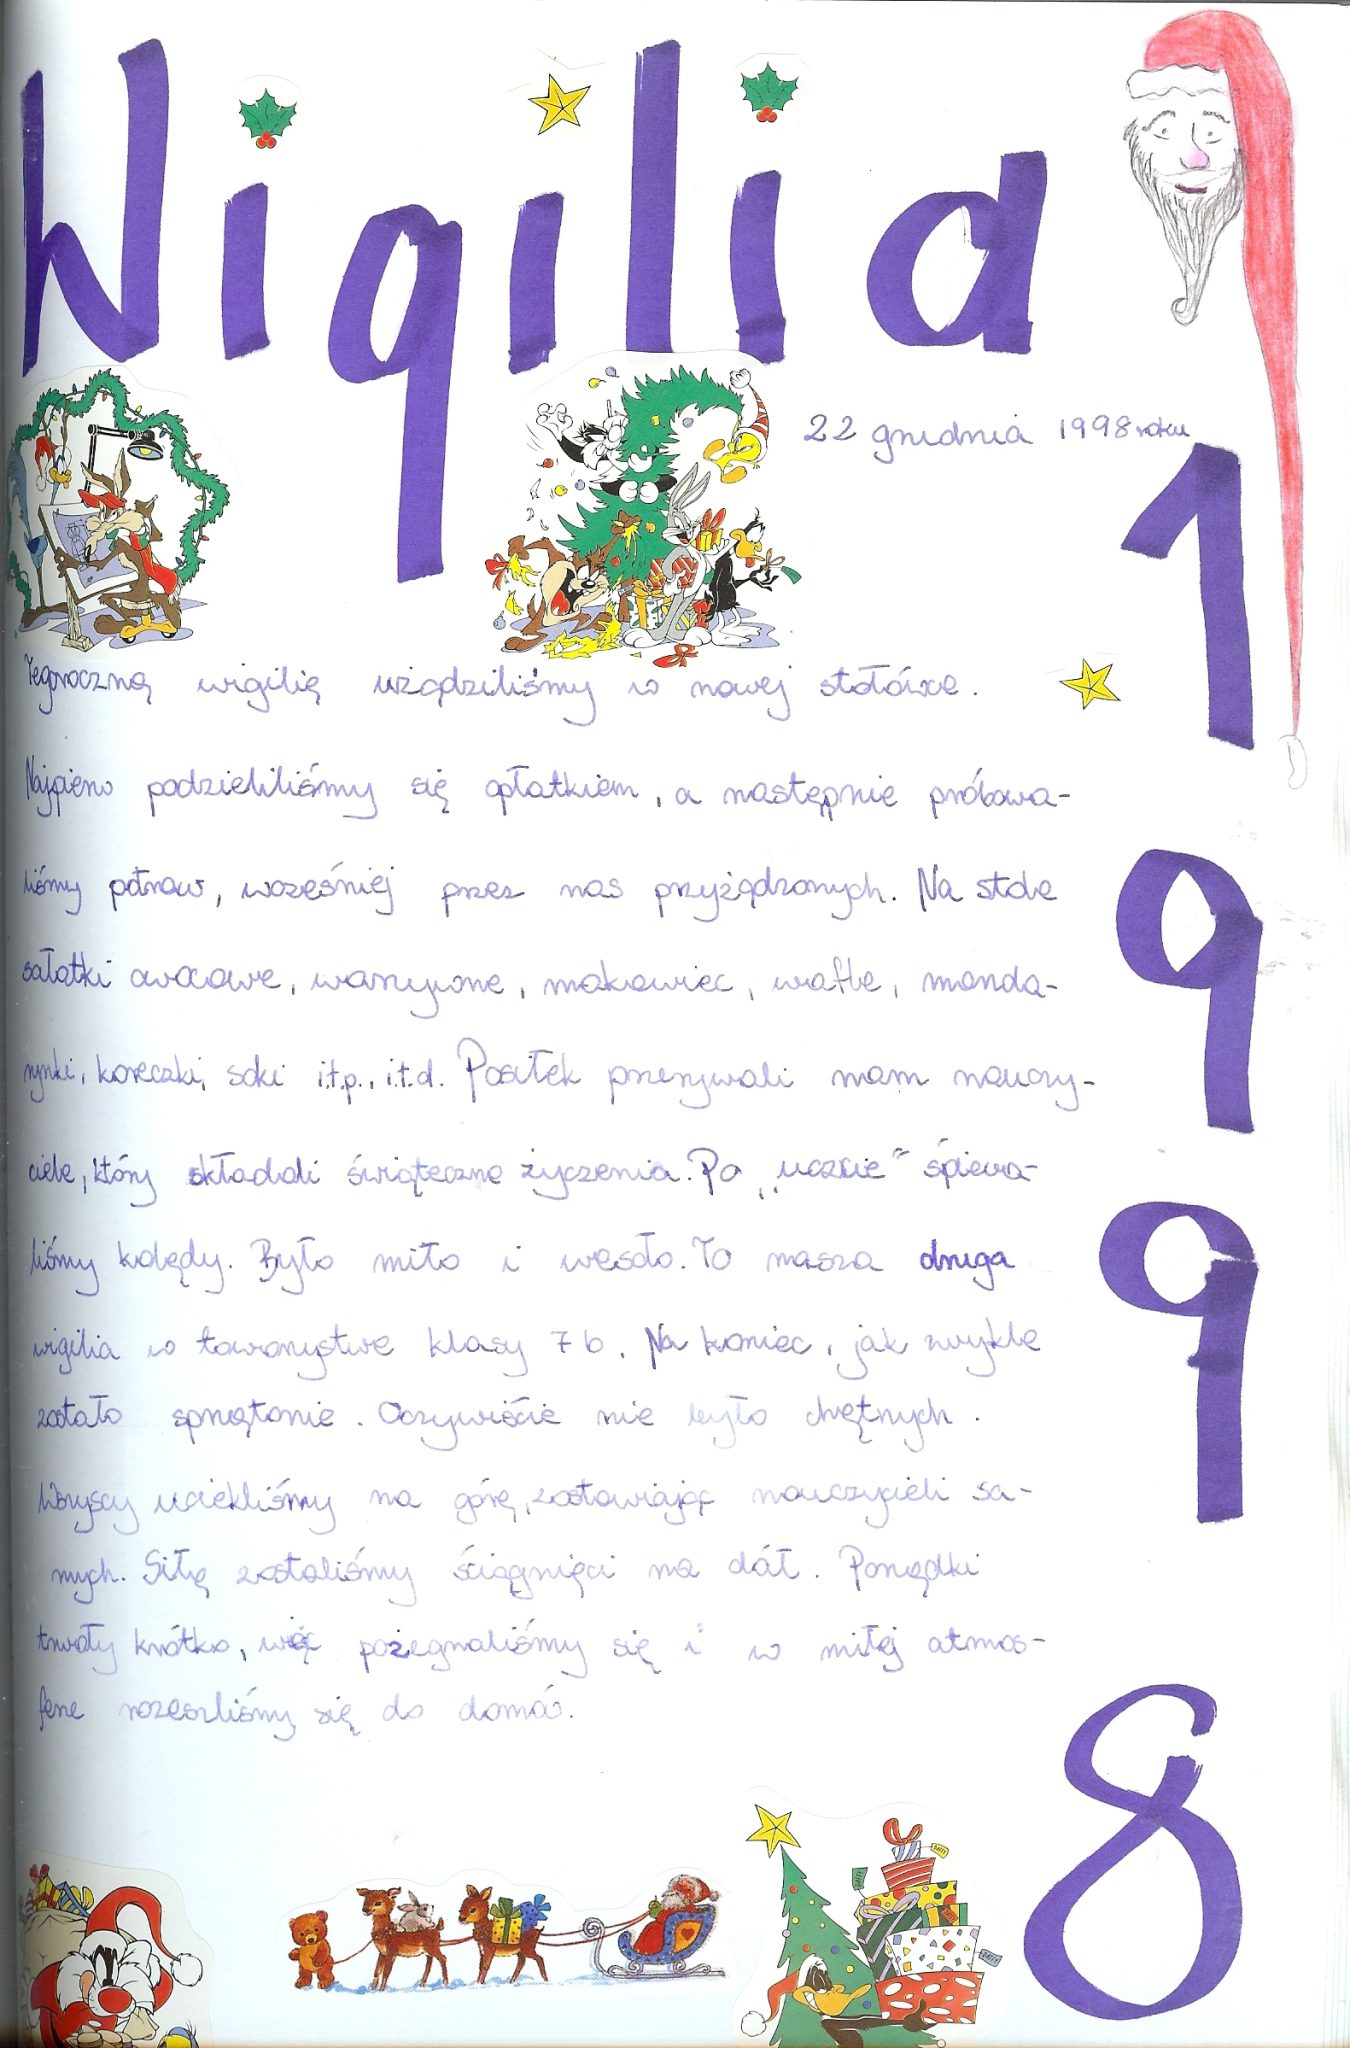 Wigilia
22 grudnia 1998 roku
1998
Tegoroczną wigilię użądziliśmy w nowej stołówce.
Najpierw podzieliliśmy się opłatkiem, a następnie próbowa-
liśmy potraw, wcześniej przez nas przyżądzonych. Na stole
sałatki owocowe, warzywne, makowiec, wafle, manda-
rynki, koreczki, soki i.t.p., i.t.d. Posiłek przerywali nam nauczy-
ciele, który składali świąteczne życzenia. Po „uczcie" śpiewa-
liśmy kolędy. Było miło i wesoło. To nasza druga
wigilia w towarzystwe klasy 7 b. Na koniec, jak zwykle
zostało sprzątanie. Oczywiście nie było chętnych.
Wszyscy uciekliśmy na górę, zostawiając nauczycieli sa-
mych. Siłą zostaliśmy ściągnięci na dół. Porządki
trwały krótko, więc pożegnaliśmy się i w miłej atmos-
ferze rozeszliśmy się do domów.